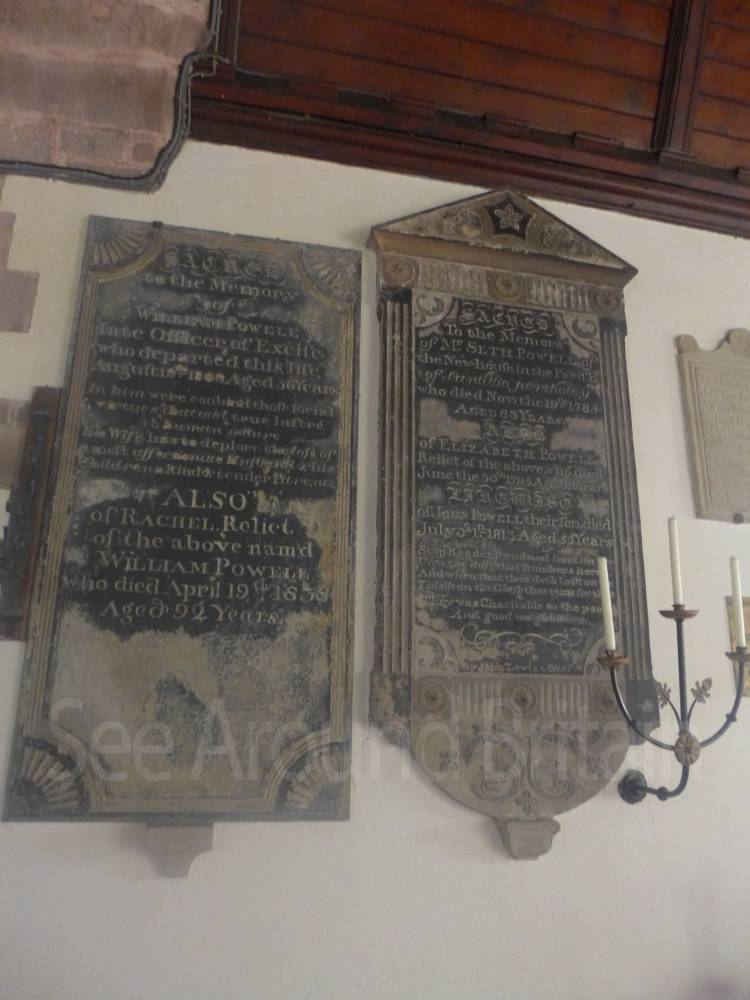 SACRED
to the Memory
of
WILLIAM POWELL
late Officer of Excise
who departed this life
August Aged 56 Years
In him were combined those social
virtues that add true lustre
to human nature
His Wife has to deplore the loss of
a most affectionate Husband & his
Children a kind & tender Parent.
ALSO
of RACHEL, Relict
of the above nam'd
WILLIAM POWELL
who died April 19th 1838
Aged 92 Years.
SACRED
To the Memory
of Mr SETH POWELL of
the New house in the Parish
of
who died Novr the 19th 1785
AGED 63 YEARS.
ALSO
of ELIZABETH POWELL
Relict of the above who died
June the 30th Aged Years
LIKEWISE
of JOHN POWELL their son, died
July 1813 Aged 55 Years
Stop Reader stand and
the dust that slumbers here
And when that thou dost look on
Think on the Glass that runs for
was Charitable to the poor
And good neighbour
By John Lewis
See Around Britain